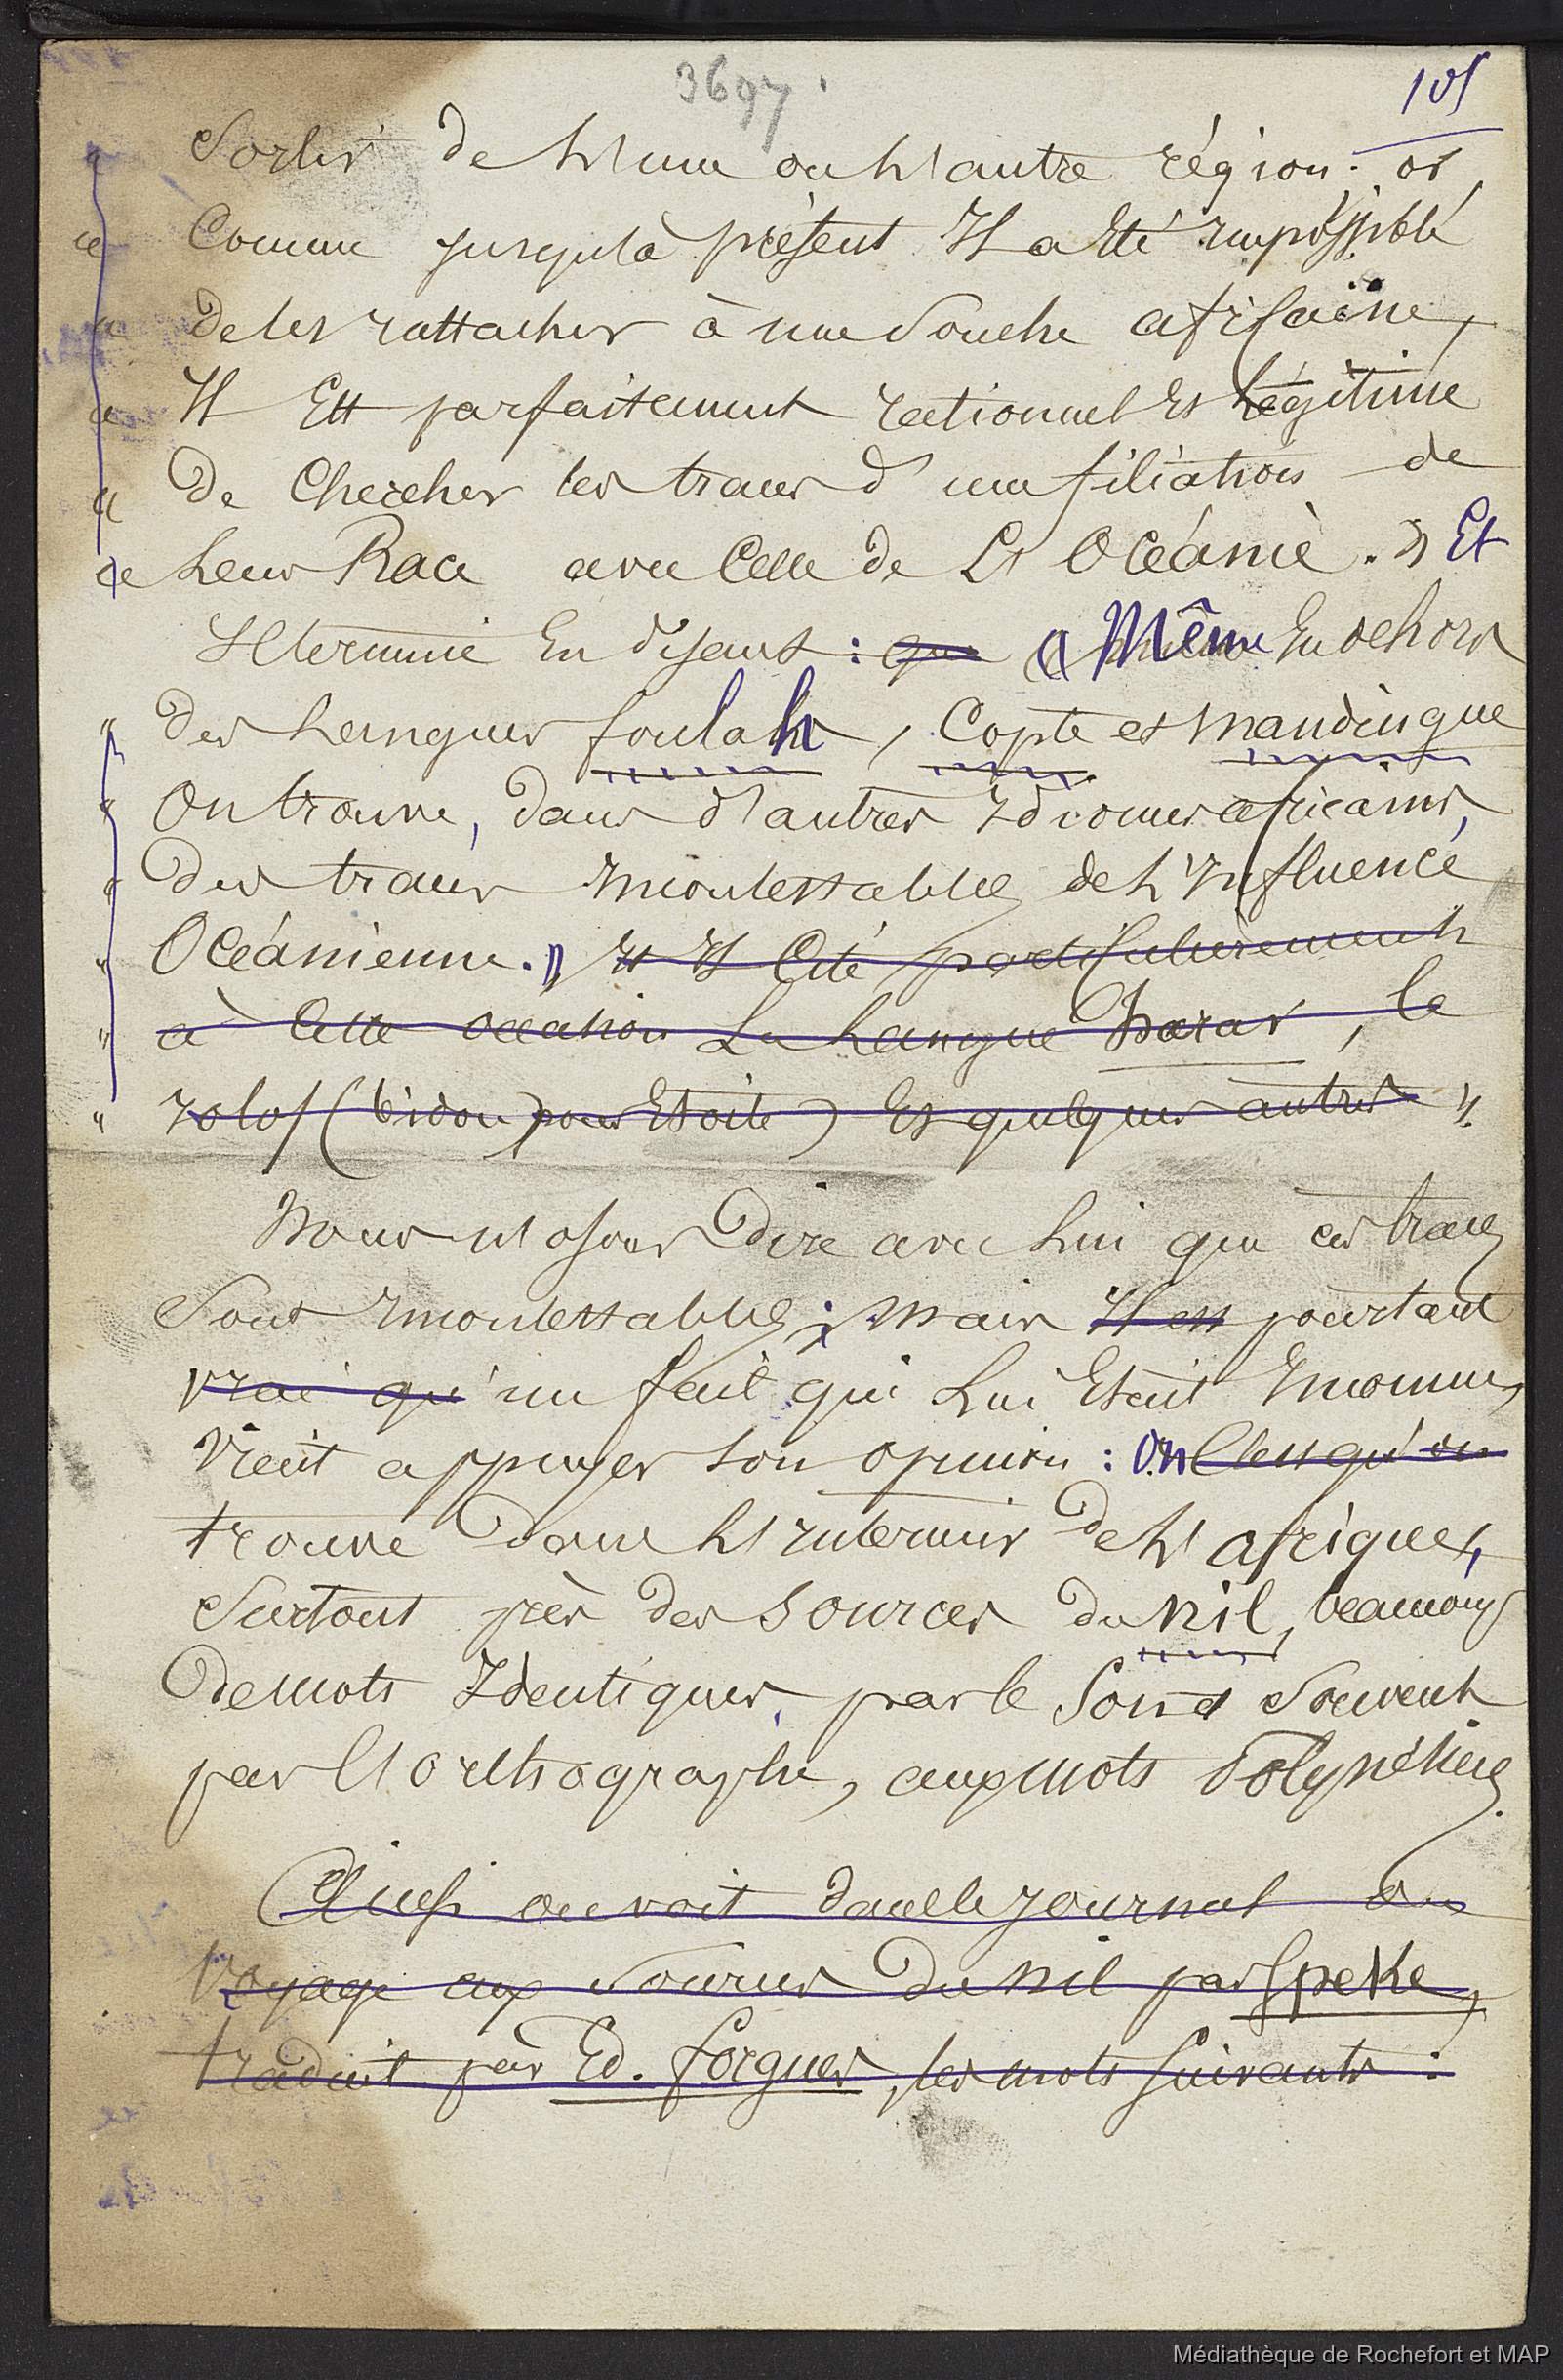 3697.
101
" Sortir de l'une ou l'autre région. or
" Comme jusqu'à présent Il a Eté impossible
" de les rattacher à une Souche africaine,
" Il Est parfaitement rationnel Et légitime
" De Chercher les traces d'une filiation de
" leur Race avec Celle de L'Océanie. » Et
Il termine En disant : que « Même En dehors
" Des Langues foulah, Copte et Mandingue
" On trouve, dans d'autres Idiomes africains,
" Des traces Incontestables de l'Influence
" Océanienne. » Et Il Cite particulièrement
" à Cette occasion La Langue , le
" Yolof (bidou pour Etoile) Et quelques autres ».
Nous n'osons Dire avec lui que ces traces
Sont Incontestables ; Mais Il est pourtant
vrai qu'un fait qui Lui Etait Inconnu,
Vient appuyer son opinion : On C'est qu'on
trouve Dans l'Intérieur De l'afrique,
Surtout près des Sources du Nil, beaucoup
De mots Identiques, par le Son et Souvent
par l'orthographe, aux mots Polynésiens.
Ainsi on voit dans le Journal du
Voyage aux Sources du Nil par Speke,
traduit par Ed. forgues, les mots Suivants :
Médiathèque de Rochefort et MAP